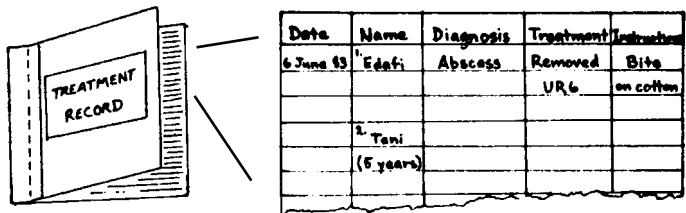 TREATMENT
RECORD
Date Name Diagnosis Treatment Instructions
6 June 83 1. Edafi Abscess Removed Bite
UR6 on cotton
2. Tani
(5 years)